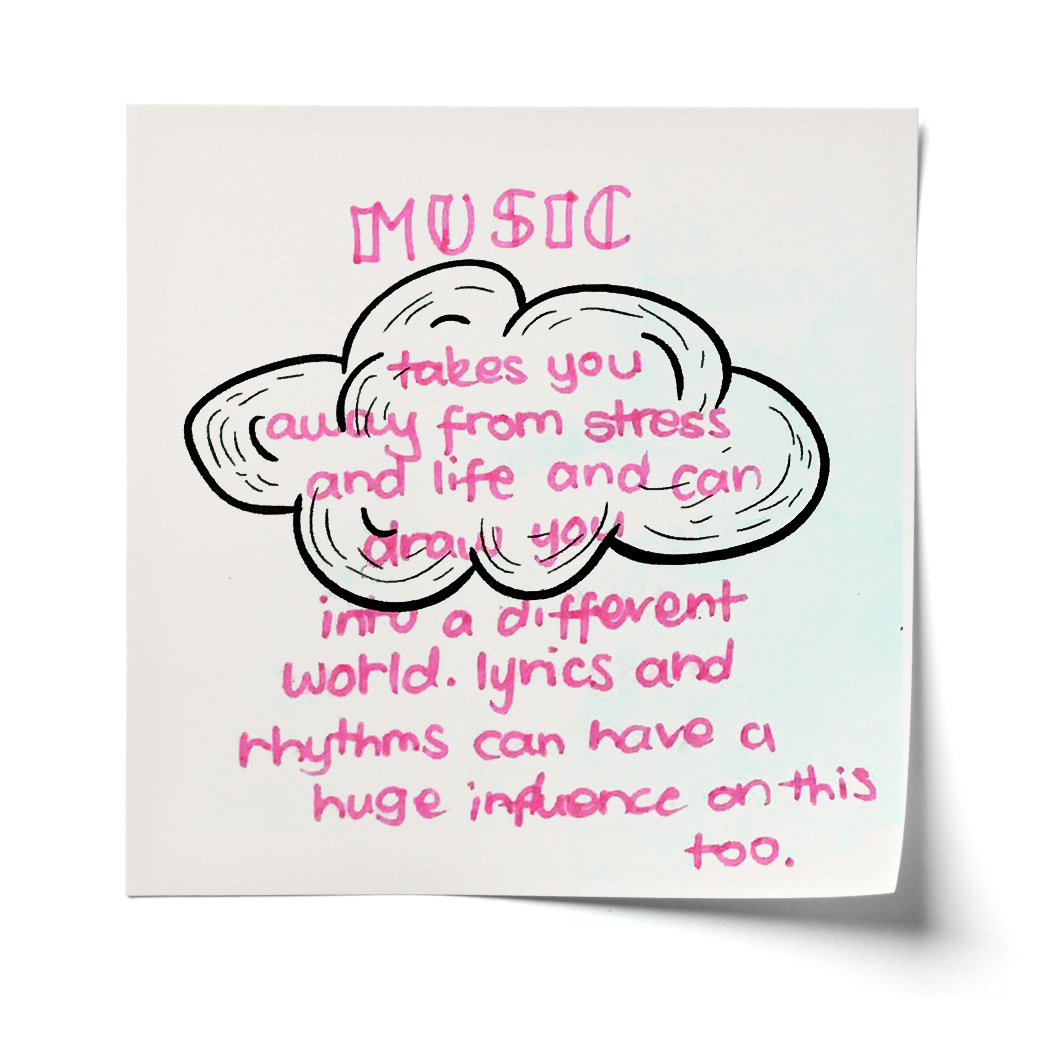 MUSIC
takes you
away from stress
and life and can
draw you
into a different
world. lyrics and
rhythms can have a
huge influence on this
too.